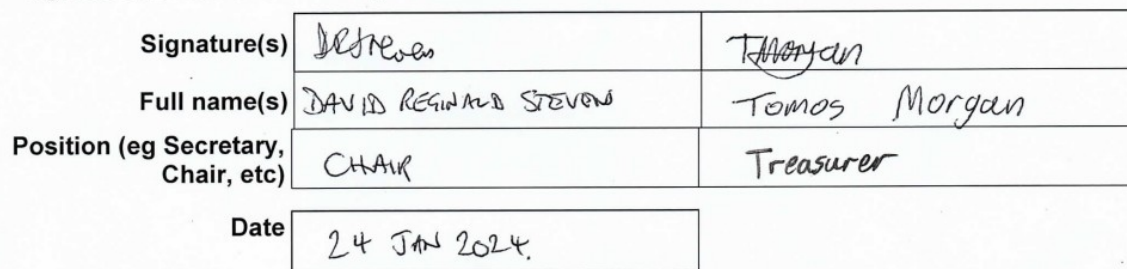 Signature(s) DRStevens TMorgan
Full name(s) DAVID REGINALD STEVENS Tomos Morgan
Position (eg Secretary,
Chair, etc) CHAIR Treasurer
Date 24 JAN 2024.